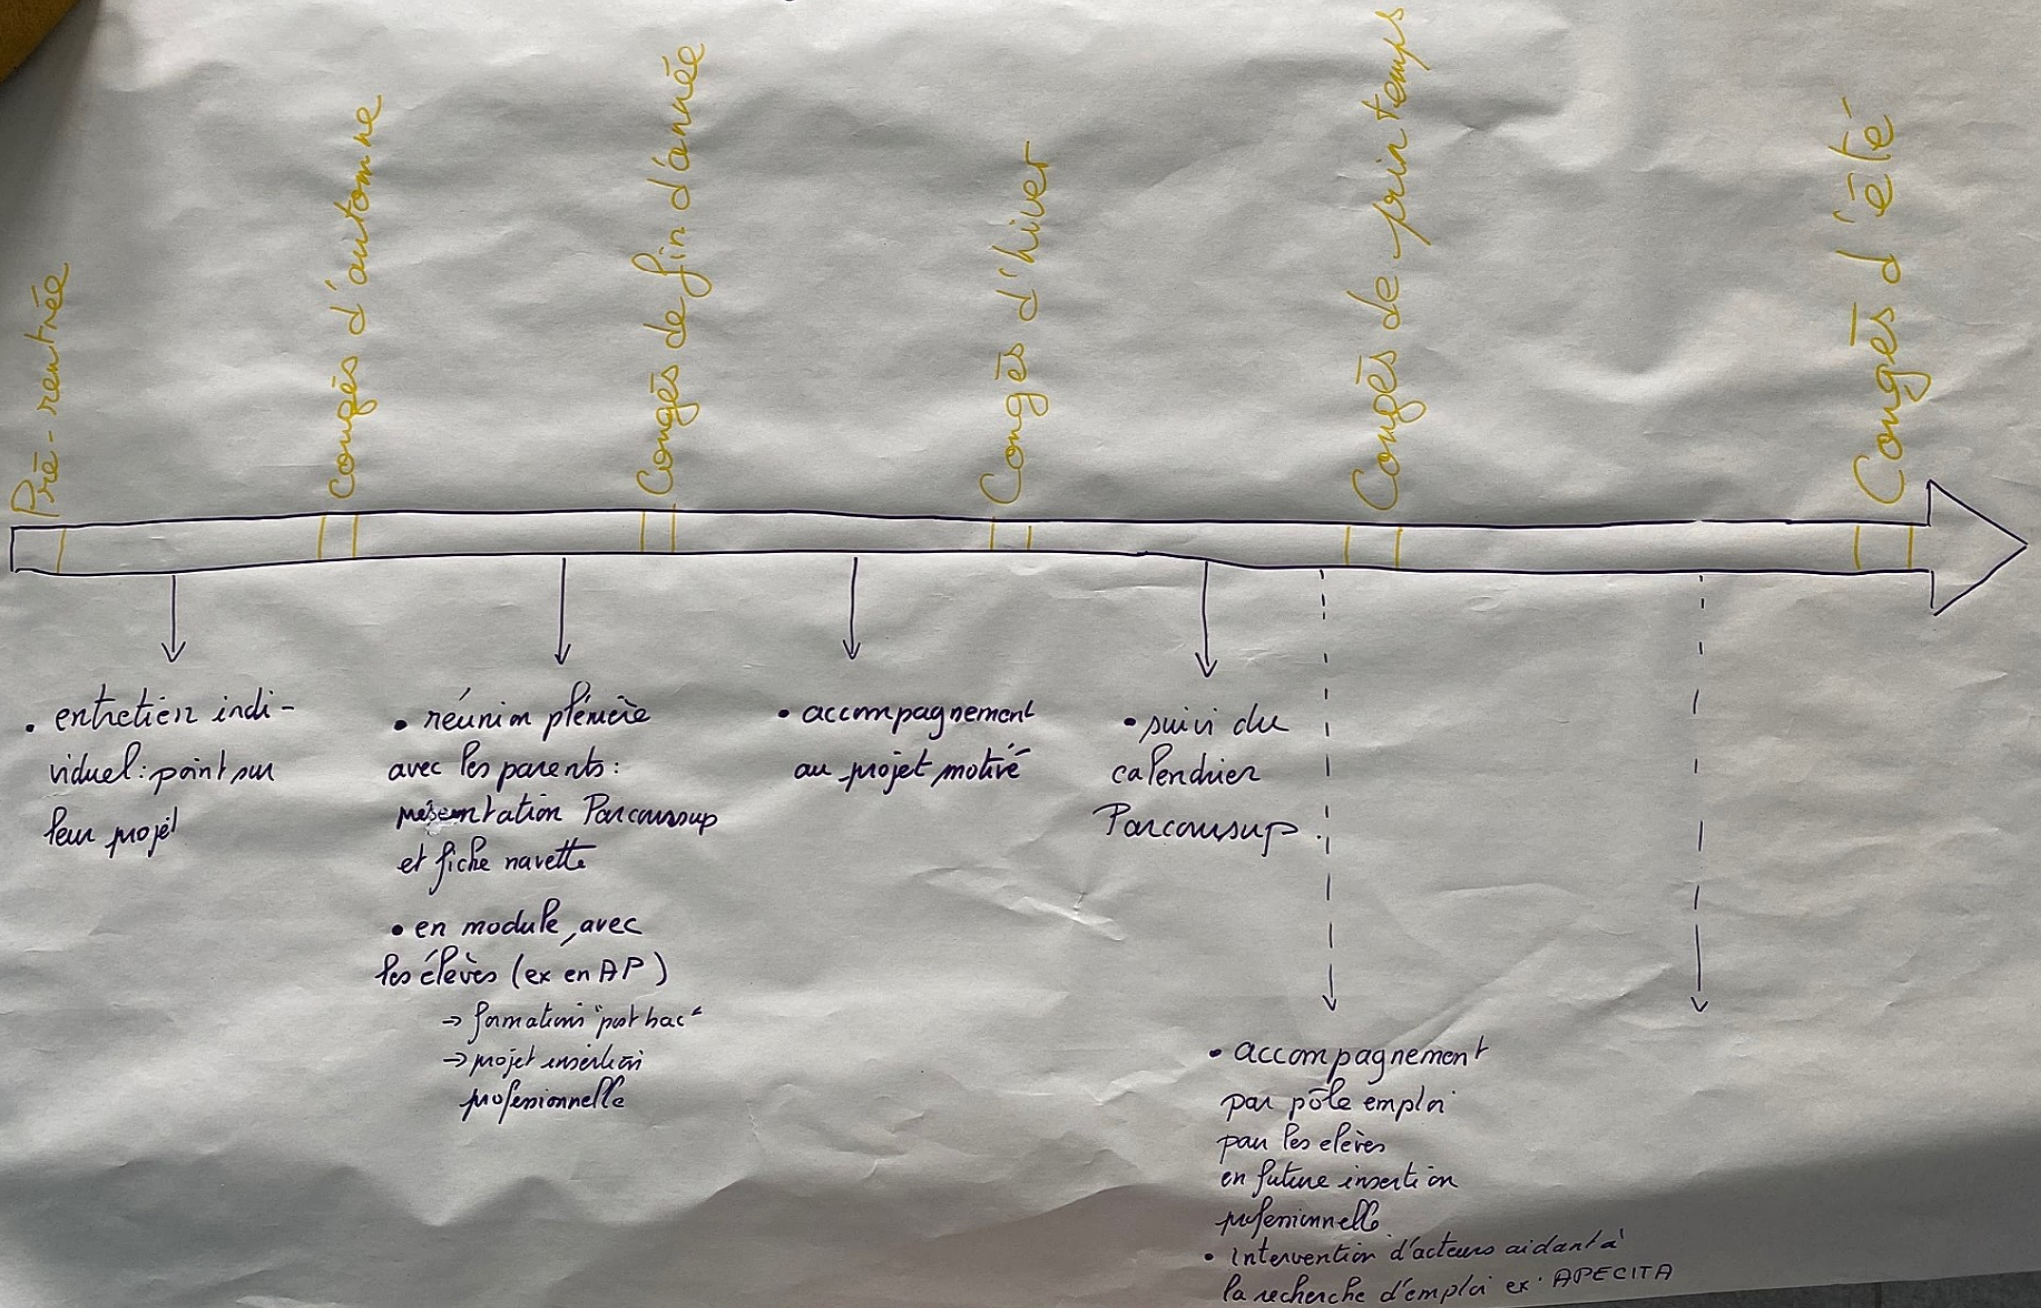 Pré-rentrée
congés d'automne
Congés de fin d'année
Congés d'hiver
Congés de printemps
Congés d'été
• entretien indi-
viduel : point sur
leur projet
• réunion plénière
avec les parents :
présentation Parcoursup
et fiche navette
• en module, avec
les élèves (ex en AP)
→ formations "post bac"
→ projet insertion
professionnelle
• accompagnement
au projet motivé
• suivi du
calendrier
Parcoursup.
• accompagnement
par pôle emploi
pour les elèves
en future insertion
professionnelle
• intervention d'acteurs aidant à
la recherche d'emploi ex : APECITA